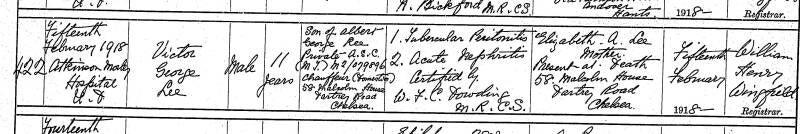 A. Bickford M.R.C.S.
Andover
Hants.
1918
Registrar.
422
Fifteenth
February 1918
Atkinson Morley
Hospital
U.D
Victor
George
Lee
Male
11
years
Son of Albert
George Lee
Private A.S.C.
(M.T.) M2/079896
Chauffeur (Domestic)
58 Malcolm House
Partney Road
Chelsea.
1. Tubercular Peritonitis
2. Acute Nephritis
Certified by
W. F. C. Dowding
M.R.C.S.
Elizabeth. A. Lee
Mother
Present at Death
58. Malcolm House
Road
Chelsea.
Fifteenth
February
1918
William
Henry
Wingfield
Registrar.
Fourteenth